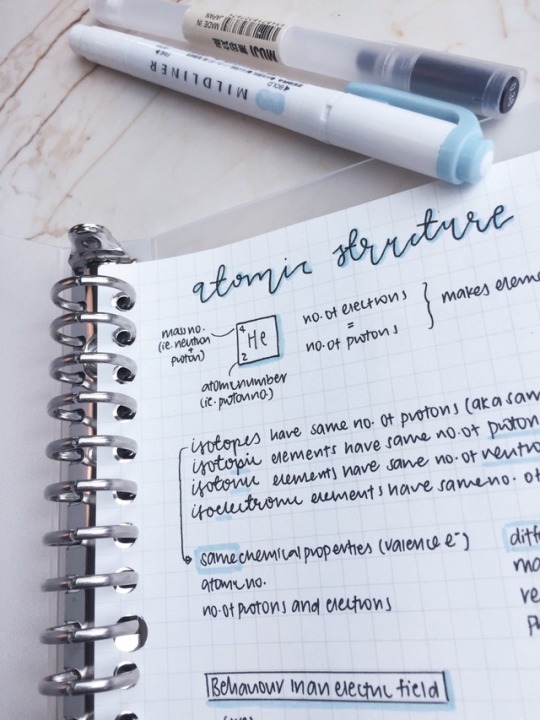 MADE IN JAPAN
MUJI 無印良品
0.38
BOLD
MILDLINER
atomic structure
mass no.
(i.e. neutron
+
proton)
4
He
2
atomic number
(i.e. proton no.)
no. of electrons
=
no. of protons
} makes eleme
isotopes have same no. of protons (aka sam
isotopic elements have same no. of proton
isotonic elements have same no. of neutro
isoelectronic elements have same no. of
same chemical properties (valence e⁻)
atomic no.
no. of protons and electrons
diffe
ma
re
Behaviour in an electric field